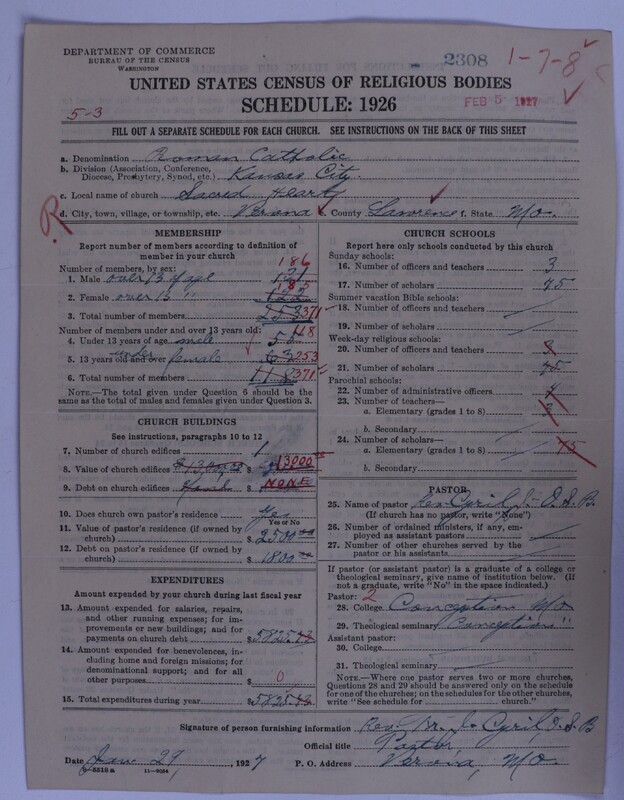 DEPARTMENT OF COMMERCE
BUREAU OF THE CENSUS
WASHINGTON
2308
1-7-8
UNITED STATES CENSUS OF RELIGIOUS BODIES
SCHEDULE: 1926
FEB 5 1927
5-3
FILL OUT A SEPARATE SCHEDULE FOR EACH CHURCH. SEE INSTRUCTIONS ON THE BACK OF THIS SHEET
a. Denomination Roman Catholic
b. Division (Association, Conference, Diocese, Presbytery, Synod, etc.) Kansas City.
c. Local name of church Sacred Heart
R
d. City, town, village, or township, etc. Verona e. County Lawrence f. State Mo.
MEMBERSHIP
Report number of members according to definition of
member in your church
Number of members, by sex:
186
1. Male over 13 of age 131
185
2. Female over 13 " 122
3. Total number of members 253 371
Number of members under and over 13 years old:
118
4. Under 13 years of age male 55
5. 13 years old and over under female 63 253
6. Total number of members 118 371
NOTE.—The total given under Question 6 should be
same as the total of males and females given under Question 3.
CHURCH BUILDINGS
See instructions, paragraphs 10 to 12
7. Number of church edifices 1
8. Value of church edifices $ 13000
9. Debt on church edifices $ NONE
10. Does church own pastor's residence? Yes
Yes or No
11. Value of pastor's residence (if owned by
church) $ 2500
12. Debt on pastor's residence (if owned by
church) $ 1800
EXPENDITURES
Amount expended by your church during last fiscal year
13. Amount expended for salaries, repairs,
and other running expenses; for im-
provements or new buildings; and for
payments on church debt $ 5825.
14. Amount expended for benevolences, in-
cluding home and foreign missions; for
denominational support; and for all
other purposes $ 0
15. Total expenditures during year $ 5825.
CHURCH SCHOOLS
Report here only schools conducted by this church
Sunday schools:
16. Number of officers and teachers 3
17. Number of scholars 75
Summer vacation Bible schools:
18. Number of officers and teachers
19. Number of scholars
Week-day religious schools:
20. Number of officers and teachers 3
21. Number of scholars 75
Parochial schools:
22. Number of administrative officers
23. Number of teachers—
a. Elementary (grades 1 to 8)
b. Secondary
24. Number of scholars—
a. Elementary (grades 1 to 8) 75
b. Secondary
PASTOR
25. Name of pastor Rev. Cyril J. O.S.B
(If church has no pastor, write "None")
26. Number of ordained ministers, if any, em-
ployed as assistant pastors
27. Number of other churches served by the
pastor or his assistants
If pastor (or assistant pastor) is a graduate of a college or
theological seminary, give name of institution below. (If
not a graduate, write "No" in the space indicated.)
Pastor: 2
28. College Conception Mo
29. Theological seminary Conception "
Assistant pastor:
30. College
31. Theological seminary
NOTE.—Where one pastor serves two or more churches,
Questions 28 and 29 should be answered only on the schedule
for one of the churches; on the schedules for the other churches,
write "See schedule for church."
Signature of person furnishing information Rev. Cyril O.S.B
Official title Pastor,
Date Jan 29, 1927 P. O. Address Verona, Mo.
11-9054